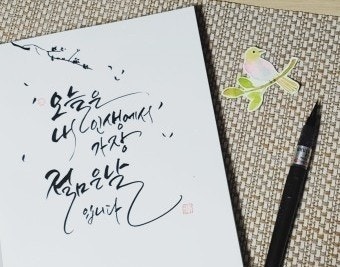 오늘은
내 인생에서
가장
젊은날
입니다